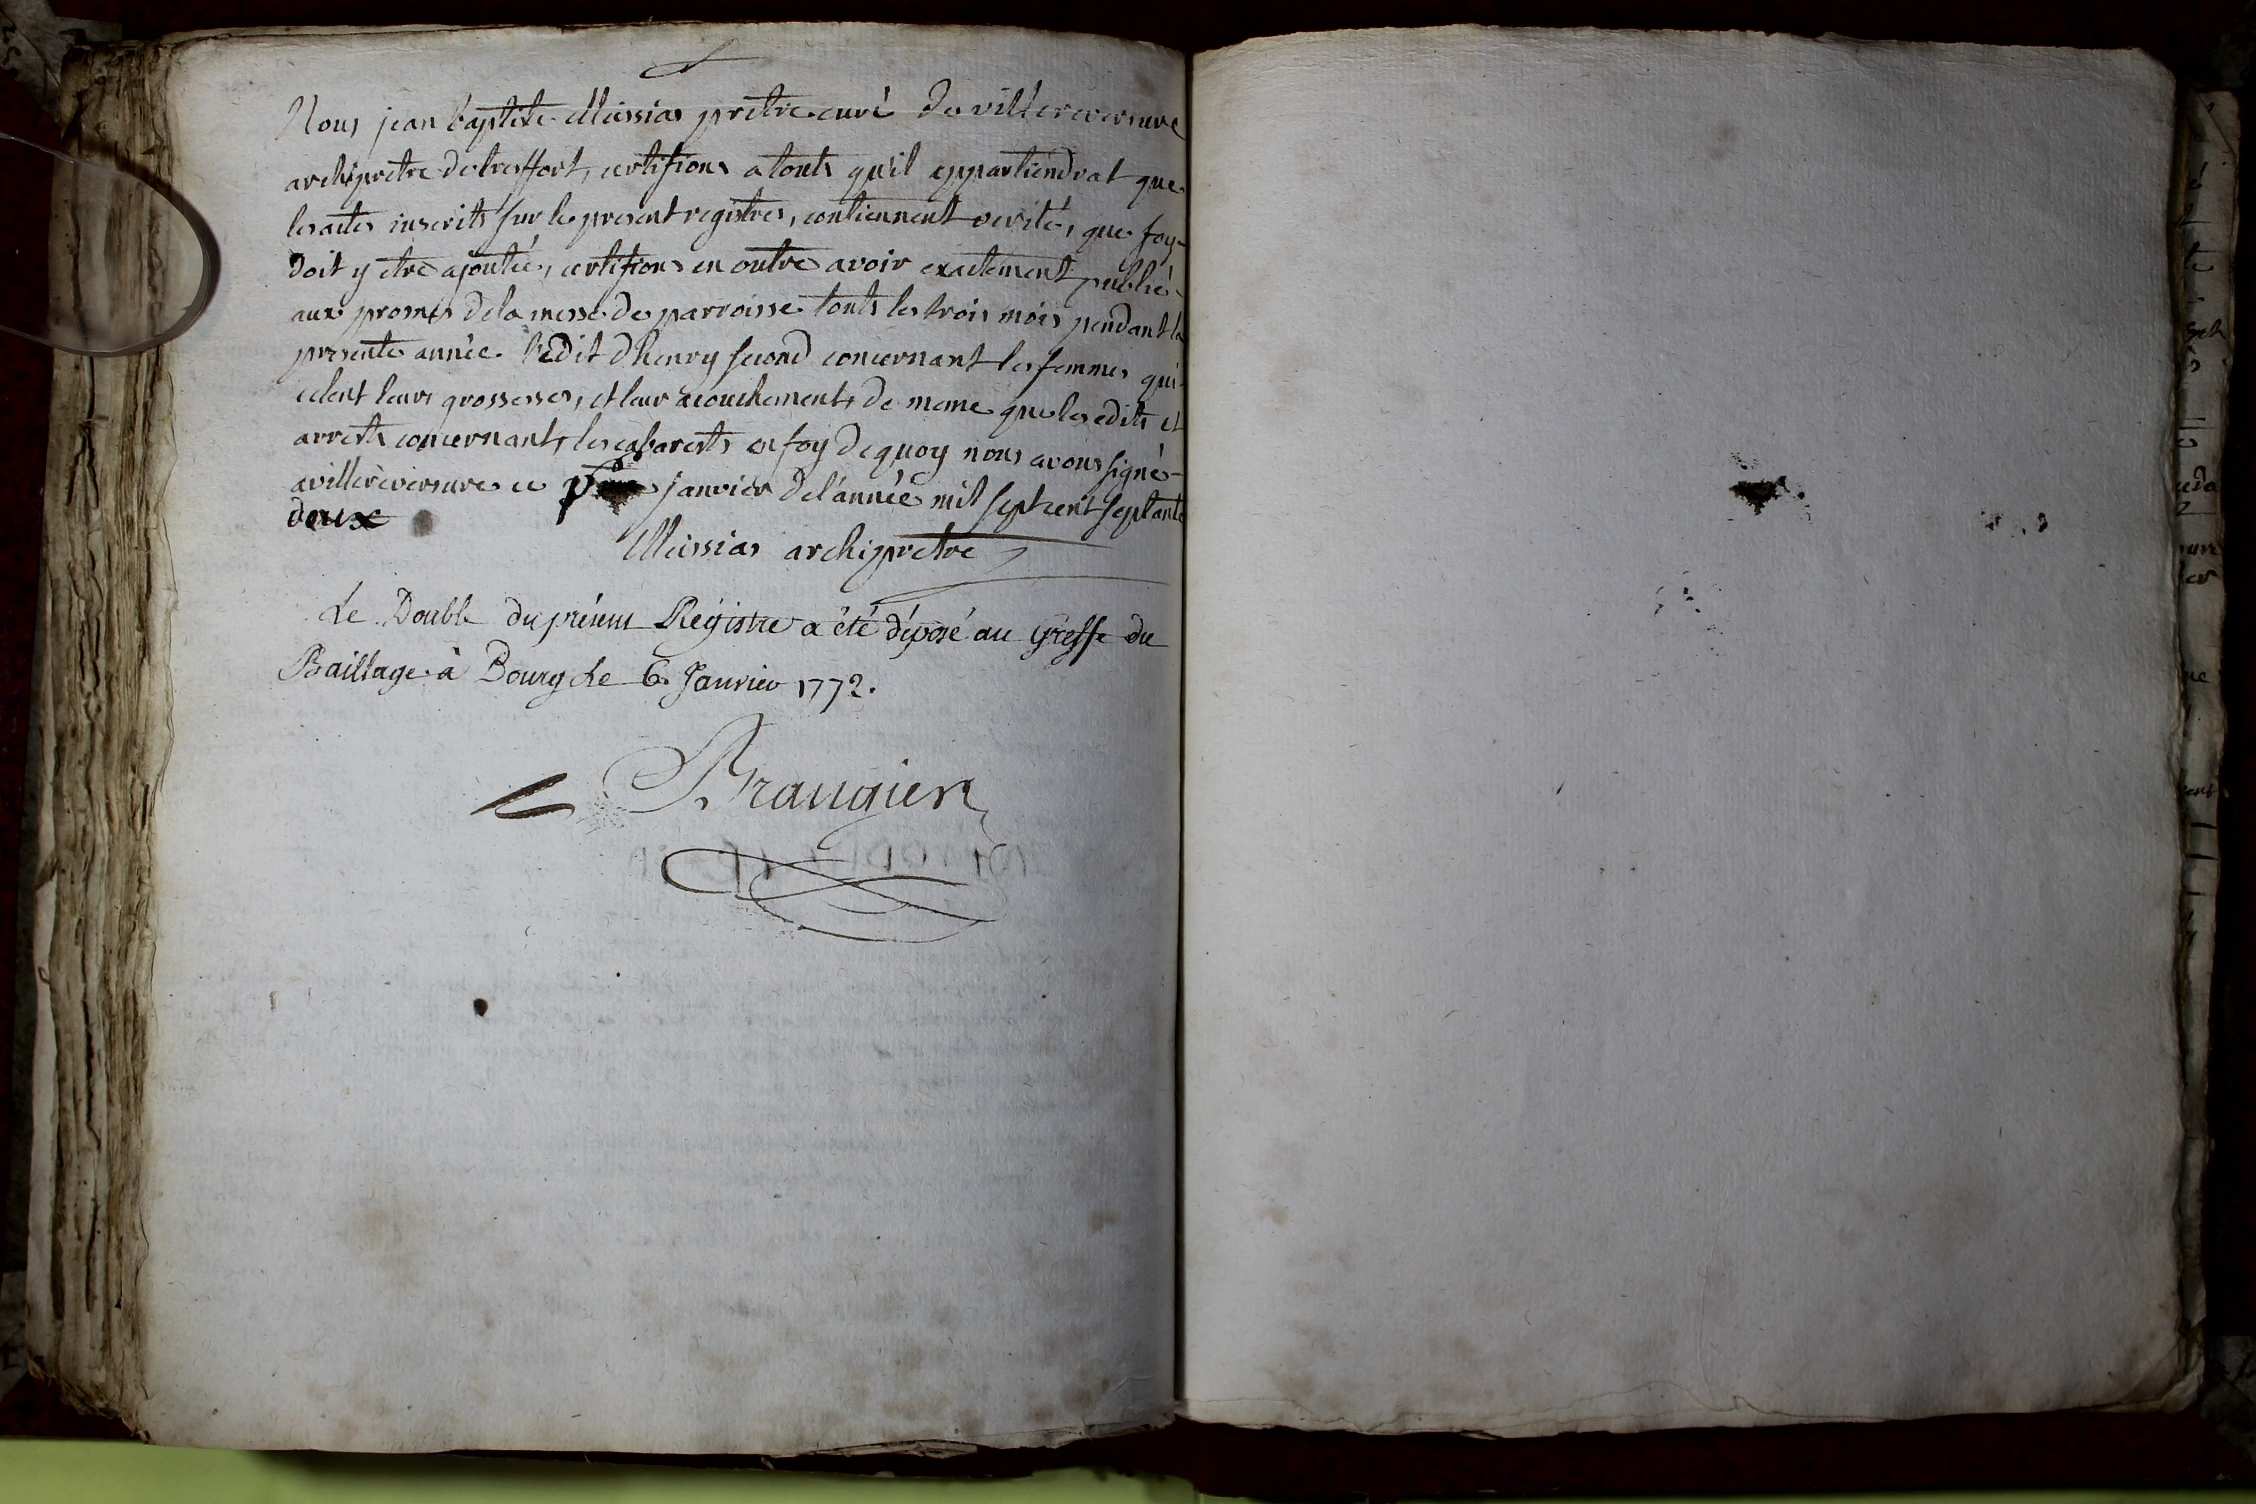 Nous jean baptiste Messias pretre curé de villereversure
archipretre de treffort, certifions a touts qu'il appartiendrat que
les actes inscrits sur le present registres, contiennent verité, que foy
doit y etre ajoutée, certifions en outre avoir exactement publié
aux prosnes de la messe de parroisse touts les trois mois pendant la
presente année l'edit d'henry second concernant les femmes qui
celent leurs grossesses, et leur acouchements de meme que les edits et
arrests concernants les cabarests en foy de quoy nous avons signé
a villereversure ce janvier de l'année mil sept cent septante
deux
Messias archipretre
Le Double du présent Régistre a été déposé au Greffe du
Baillage à Bourg Le 6. Janvier 1772.
Brangier